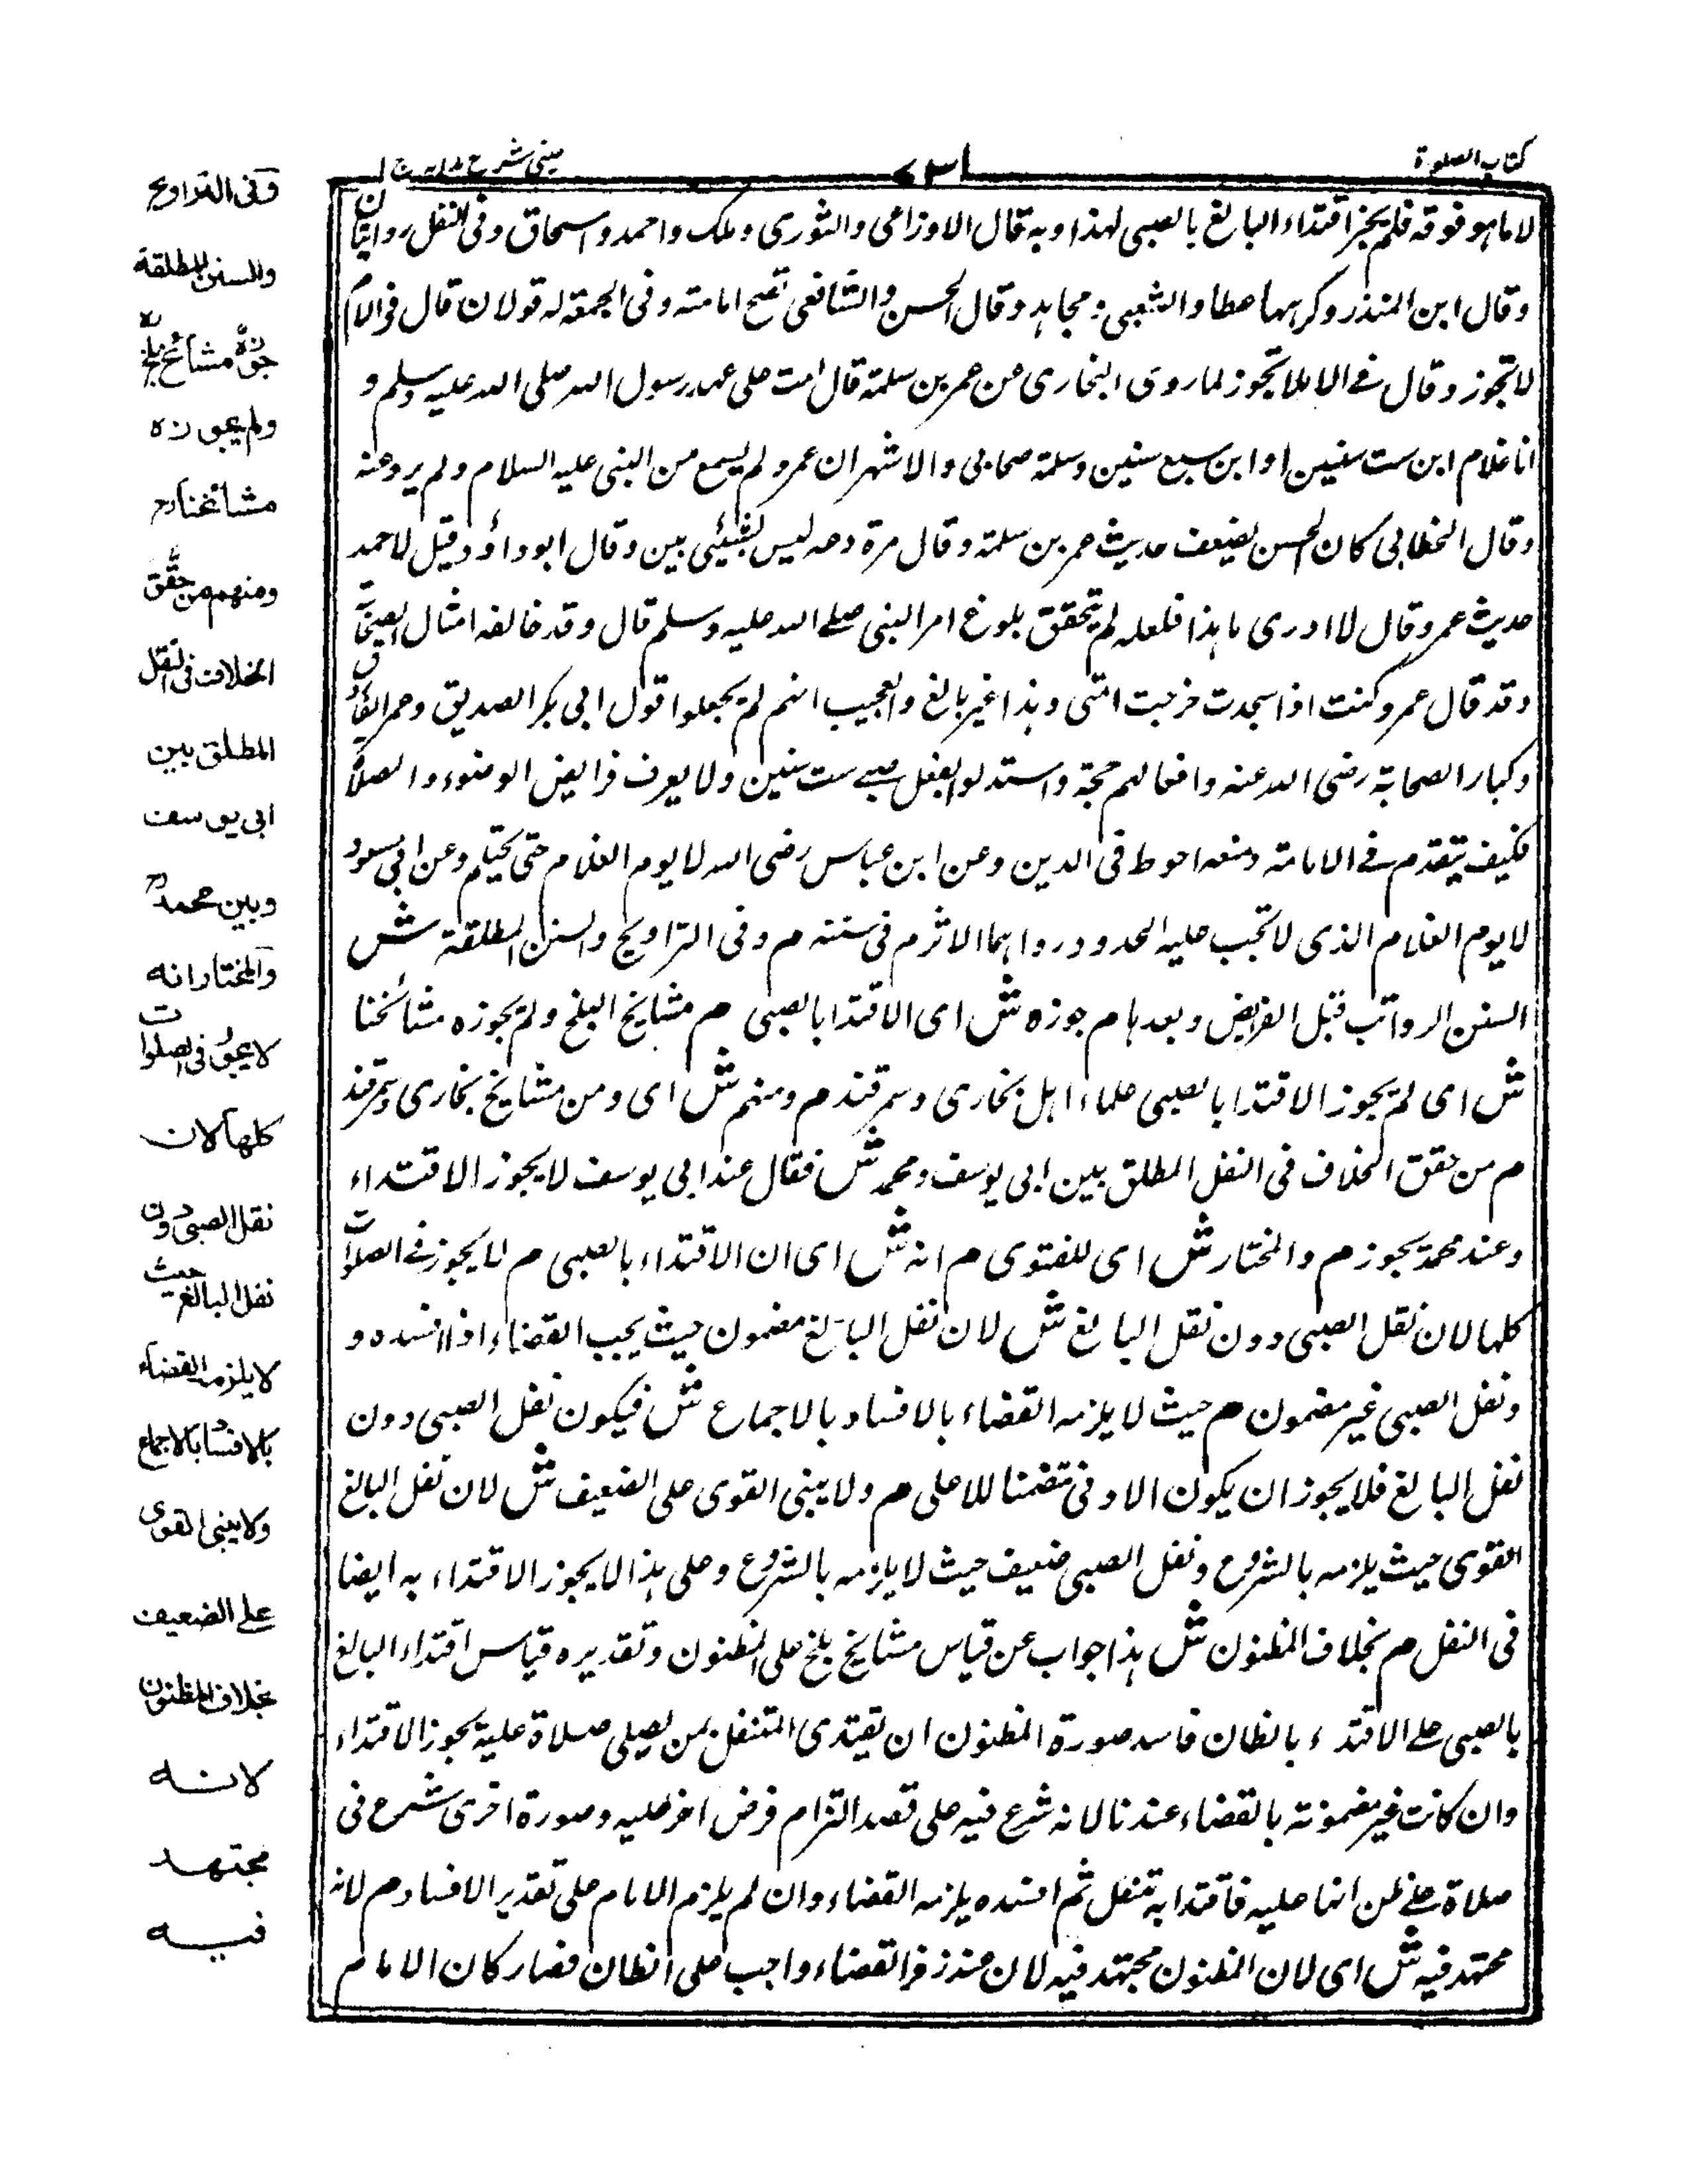 كتاب الصلوة
٧٣١
عيني شرح هدايه ج ١
لا ما هو فوقه فلم يجز اقتداء البالغ بالصبي لهذا وبه قال الاوزاعي والثوري وملك واحمد واسحاق وفي النفل روايتان
وقال ابن المنذر وكرهها عطا والشعبي ومجاهد وقال الحسن والشافعي تصح امامته وفي الجمعة له قولان قال في الام
لا تجوز وقال في الاملا تجوز لما روى البخاري عن عمر بن سلمة قال امت على عهد رسول الله صلى الله عليه وسلم و
انا غلام ابن ست سنين او ابن سبع سنين وسلمة صحابي والاشهر ان عمرو لم يسمع من النبي عليه السلام ولم يرو عنه
وقال الخطابي كان الحسن يضعف حديث عمر بن سلمة وقال مرة دعه ليس بشيئي بين وقال ابو داؤد قيل لاحمد
حديث عمرو قال لا ادرى ما هذا فلعله لم يتحقق بلوغ امر النبي صلى الله عليه وسلم قال وقد خالفه امثال الصحابة
وقد قال عمرو كنت اذا سجدت خرجت استي وهذا غير بالغ والعجيب انهم لم يجعلوا قول ابي بكر الصديق وعمر الفاروق
وكبار الصحابة رضى الله عنه وافعالهم حجة واستدلوا بفعل صبي ست سنين ولا يعرف فرايض الوضوء والصلاة
فكيف يتقدم في الامامة ومنعه احوط في الدين وعن ابن عباس رضى الله لا يوم الغلام حتى يحتلم وعن ابن مسعود
لا يوم الغلام الذي لا تجب عليه الحدود رواهما الاثرم في سننه م وفي التراويح والسنن المطلقة ش
السنن الرواتب قبل الفرايض وبعدها م جوزه ش اى الاقتدا بالصبي م مشايخ البلخ ولم يجوزه مشائخنا
ش اى لم يجوز الاقتدا بالصبي علماء اهل بخارى وسمرقند م ومنهم ش اى ومن مشايخ بخارى وسمرقند
م من حقق الخلاف في النفل المطلق بين ابي يوسف ومحمد ش فقال عند ابي يوسف لا يجوز الاقتداء
وعند محمد يجوز م والمختار ش اى للفتوى م انه ش اى ان الاقتداء بالصبي م لا يجوز في الصلوات
كلها لان نفل الصبي دون نفل البالغ ش لان نفل البالغ مضمون حيث يجب القضاء اذا افسده و
ونفل الصبي غير مضمون م حيث لا يلزمه القضاء بالافساد بالاجماع ش فيكون نفل الصبي دون
نفل البالغ فلا يجوز ان يكون الادنى متضمنا للاعلى م ولا يبنى القوى على الضعيف ش لان نفل البالغ
القوى حيث يلزمه بالشروع ونفل الصبي ضعيف حيث لا يلزمه بالشروع وعلى هذا لا يجوز الاقتداء به ايضا
في النفل م بخلاف المظنون ش هذا جواب عن قياس مشايخ بلخ على المظنون وتقديره قياس اقتداء البالغ
بالصبي على الاقتداء بالظان فاسد صورة المظنون ان يقتدى المتنفل بمن يصلى صلاة عليه يجوز الاقتداء
وان كانت غير مضمونة بالقضاء عندنا لانه شرع فيه على قصد التزام فرض اخر عليه وصورة اخرى شرع في
صلاة على ظن انها عليه فاقتدا به متنفل ثم افسده يلزمه القضاء وان لم يلزم الامام على تقدير الافساد م لانه
مجتهد فيه ش اى لان المظنون مجتهد فيه لان عند زفر القضاء واجب على الظان فصار كان الامام
وفي التراويح
والسنن المطلقة
جوزه مشائخ بلخ
ولم يجوزه
مشائخنا رح
ومنهم من حقق
الخلاف في النفل
المطلق بين
ابي يوسف
وبين محمد رح
والمختار انه
لا يجوز في الصلوات
كلها لان
نفل الصبي دون
نفل البالغ حيث
لا يلزمه القضاء
بالافساد بالاجماع
ولا يبنى القوى
على الضعيف
بخلاف المظنون
لانه
مجتهد
فيه